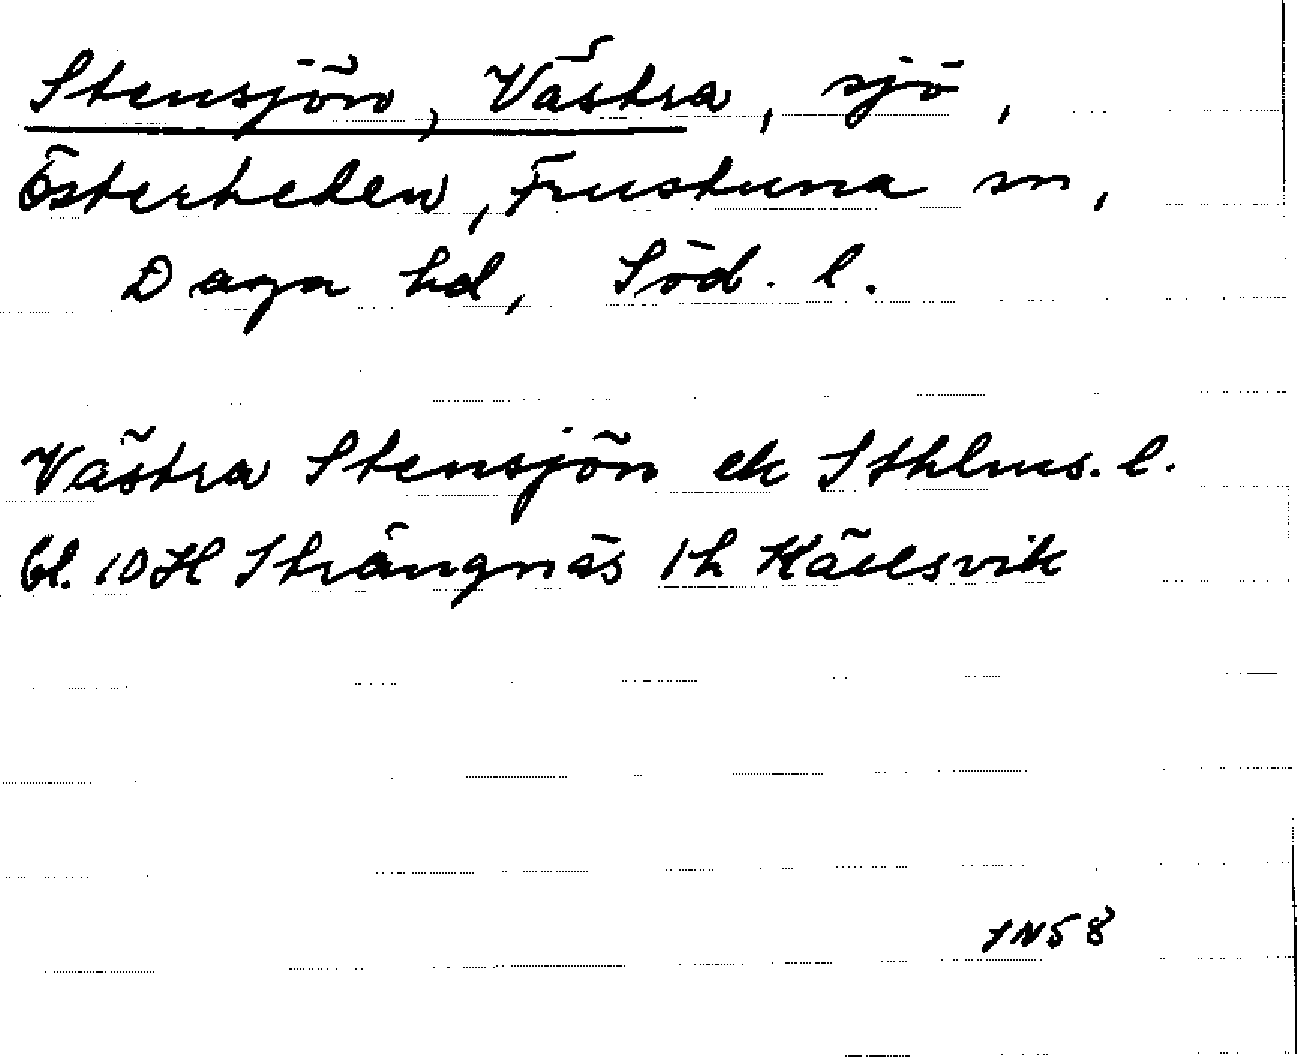 Stensjön, Västra, sjö,
Österheden, Frustuna sn,
Daga hd, Söd. l.
Västra Stensjön ek Sthlms. l.
bl. 10 H Strängnäs 1h Kärlsvik